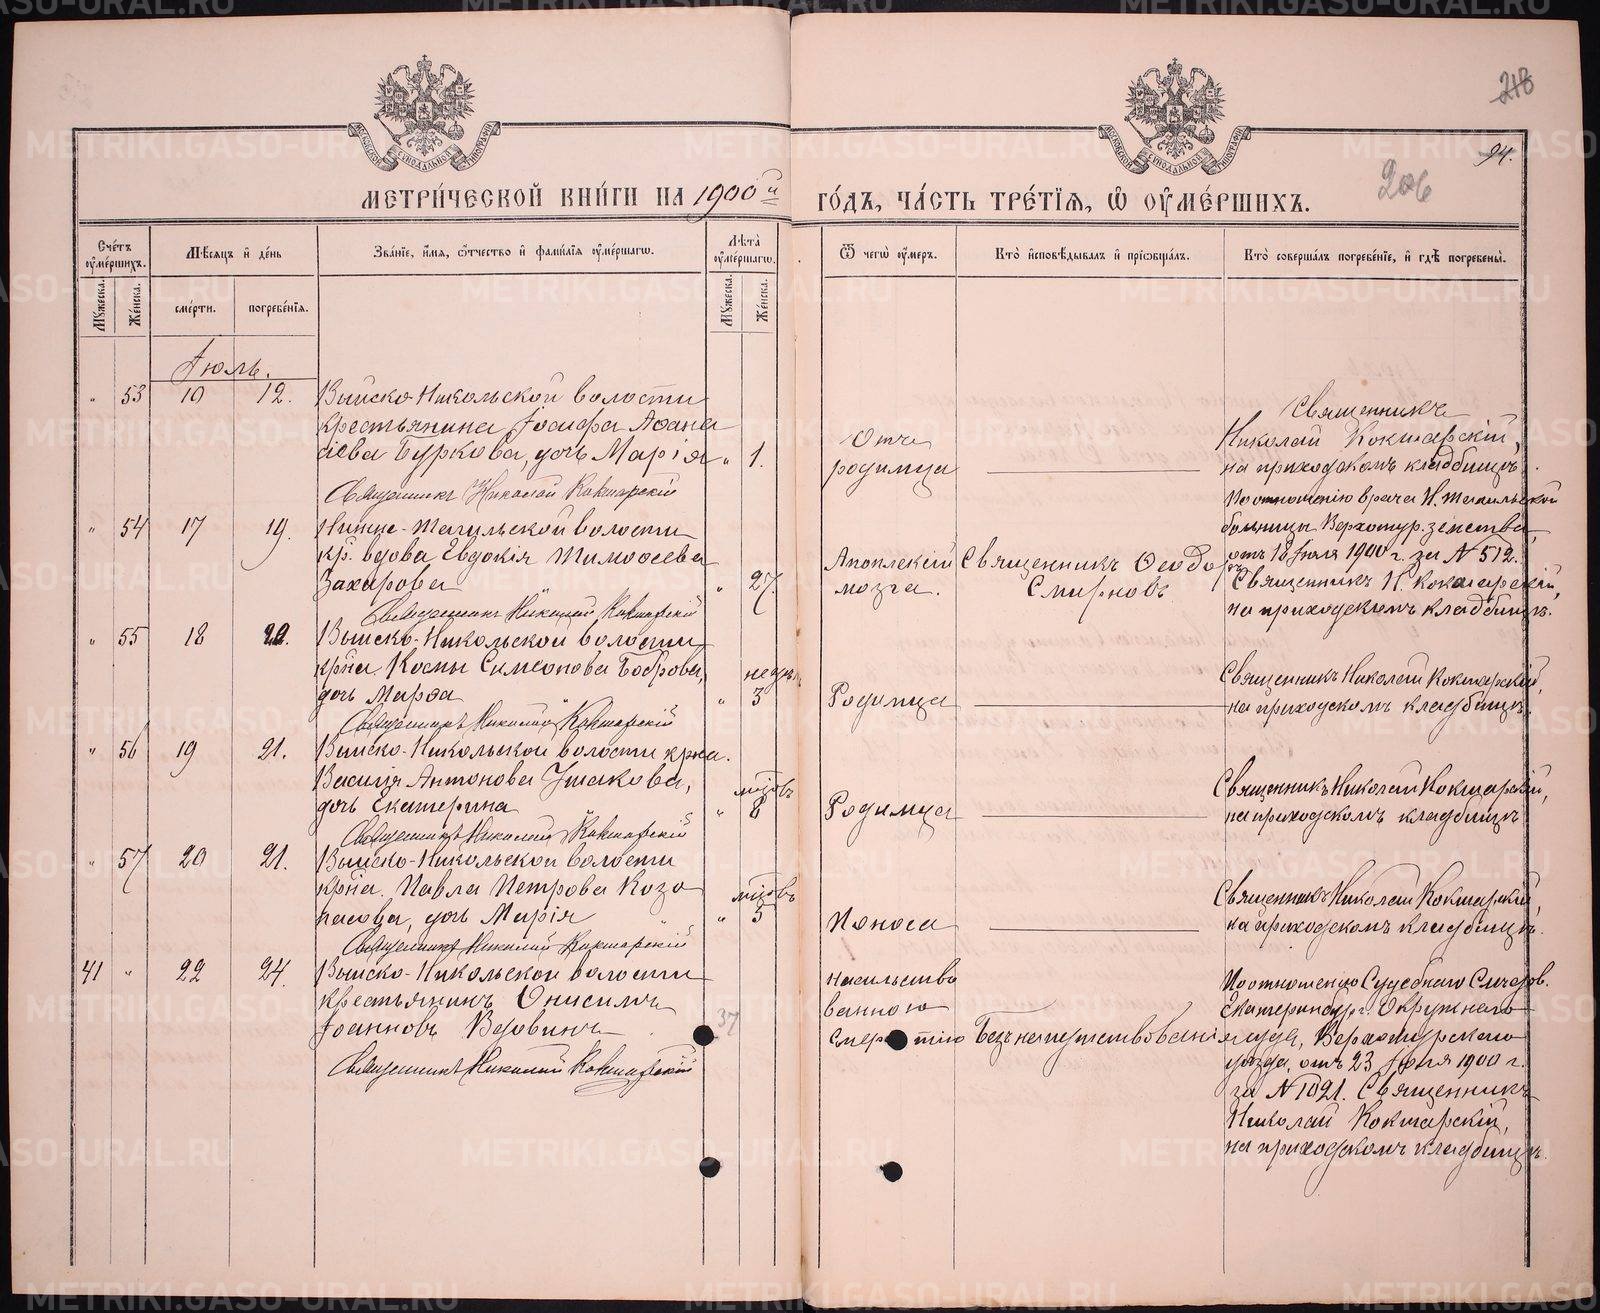 218
94.
206
МЕТРИ́ЧЕСКОЙ КНИ́ГИ НА 1900й ГО́ДЪ, ЧА́СТЬ ТРЕ́ТІѦ, Ѡ҆ ОУ҆МЕ́РШИХЪ.
Сче́тъ оу҆ме́ршихъ.
Мꙋ́жеска.
Же́нска.
Мѣ́сѧцъ и҆ де́нь
сме́рти.
погребе́нїѧ.
Зва́нїе, и҆́мѧ, ѻ҆́тчество и҆ фами́лїѧ оу҆ме́ршагѡ.
Лѣ́та оу҆ме́ршагѡ.
Мꙋ́жеска.
Же́нска.
Ѿ чегѡ̀ оу҆́меръ.
Кто̀ и҆сповѣ́дывалъ и҆ прїѡбща́лъ.
Кто̀ соверша́лъ погребе́нїе, и҆ гдѣ̀ погребены̀.
Іюль.
" 53 10 12.
Выйско-Никольской волости
крестьянина Іоасафа Аѳана
сіева Буркова, дочь Марія " 1.
Священникъ Николай Кокшарскій
Отъ
родимца
Священникъ
Николай Кокшарскій,
на приходскомъ кладбищѣ.
" 54 17 19.
Нижне-Тагильской волости
кр. вдова Евдокія Тимоѳеева
Захарова " 27.
Священникъ Николай Кокшарскій
Апоплексій
мозга.
Священникъ Ѳеодоръ
Смирновъ
По отношенію врача Н. Тагильской
больницы Верхотур. земства,
отъ 18 Іюля 1900 г. за № 512.
Священникъ Н. Кокшарскій,
на приходскомъ кладбищѣ.
" 55 18 20.
Выйско-Никольской волости
кр-на. Космы Симеонова Боброва, недѣль
дочь Марѳа " 3
Священникъ Николай Кокшарскій
Родимца
Священникъ Николай Кокшарскій,
на приходскомъ кладбищѣ.
" 56 19 21.
Выйско-Никольской волости кр-на.
Василія Антонова Ушакова, мѣсѣвъ
дочь Екатерина " 8
Священникъ Николай Кокшарскій
Родимца
Священникъ Николай Кокшарскій,
на приходскомъ кладбищѣ
" 57 20 21.
Выйско-Никольской волости
кр-на. Павла Петрова Козо
пасова, дочь Марія " 5
Священникъ Николай Кокшарскій
Поноса
Священникъ Николай Кокшарскій,
на приходскомъ кладбищѣ.
41 " 22 24.
Выйско-Никольской волости
крестьянинъ Онисимъ
Іоанновъ Вдовинъ 37
Священникъ Николай Кокшарскій
насильство
венною
смертію
Безъ напутствованія
По отношенію Судебнаго Слѣдов.
Екатеринбург. Окружнаго
суда, Верхотурскаго
уѣзда, отъ 23 Іюля 1900 г.
за № 1021. Священникъ
Николай Кокшарскій,
на приходскомъ кладбищѣ.